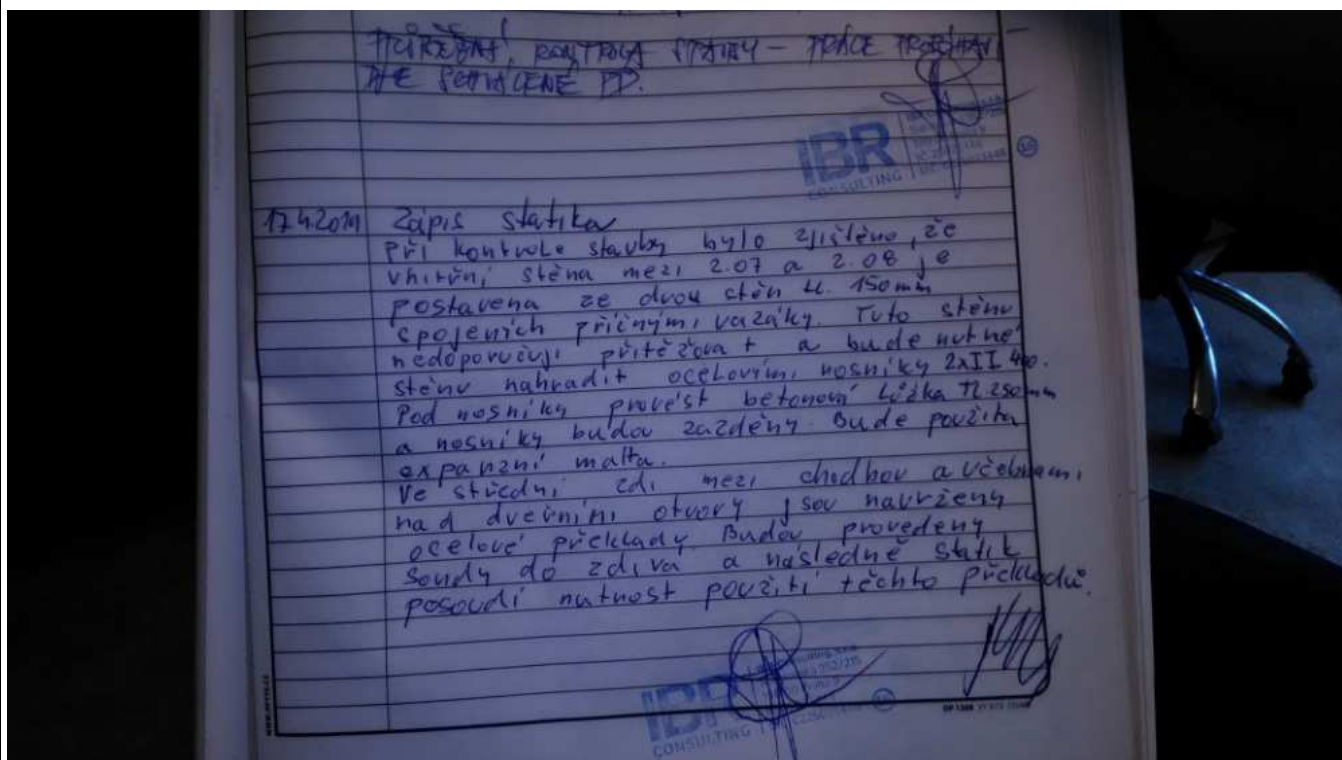 KONTROLA STAVBY – PRÁCE
DLE SCHVÁLENÉ PD.
IBR
CONSULTING
17.4.2019 Zápis statika
Při kontrole stavby bylo zjištěno, že
vnitřní stěna mezi 2.07 a 2.08 je
postavena ze dvou stěn tl. 150mm
spojených příčnými vazáky. Tuto stěnu
nedoporučuji přitěžovat a bude nutné
stěnu nahradit ocelovými nosníky 2xII 400.
Pod nosníky provést betonová lůžka tl. 250mm
a nosníky budou zazděny. Bude použita
expanzní malta.
Ve střední zdi mezi chodbou a učebnami
nad dveřními otvory jsou navrženy
ocelové překlady. Budou provedeny
sondy do zdiva a následně statik
posoudí nutnost použití těchto překladů.
IBR
CONSULTING